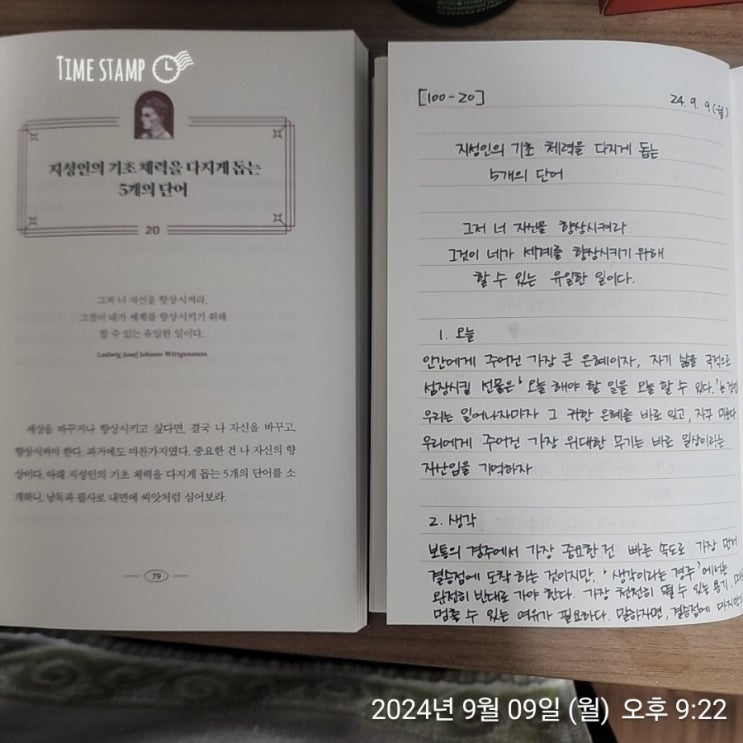 TIME STAMP
지성인의 기초 체력을 다지게 돕는
5개의 단어
20
그저 너 자신을 향상시켜라.
그것이 네가 세계를 향상시키기 위해
할 수 있는 유일한 일이다.
Ludwig Josef Johann Wittgenstein
세상을 바꾸거나 향상시키고 싶다면, 결국 나 자신을 바꾸고,
향상시켜야 한다. 과거에도 마찬가지였다. 중요한 건 나 자신의 향
상이다. 아래 지성인의 기초 체력을 다지게 돕는 5개의 단어를 소
개하니, 낭독과 필사로 내면에 씨앗처럼 심어보라.
79
[100-20]
24. 9. 9(월)
지성인의 기초 체력을 다지게 돕는
5개의 단어
그저 너 자신을 향상시켜라.
그것이 네가 세계를 향상시키기 위해
할 수 있는 유일한 일이다.
1. 오늘
인간에게 주어진 가장 큰 은혜이자, 자기 삶을 극적으로
성장시킬 선물은 '오늘 해야 할 일을 오늘 할 수 있다.'는
우리는 일어나자마자 그 귀한 은혜를 바로 잊고, 자꾸
우리에게 주어진 가장 위대한 무기는 바로 일상이라는
자산임을 기억하자
2. 생각
보통의 경주에서 가장 중요한 건 빠른 속도로 가장 먼저
결승점에 도착하는 것이지만, '생각이라는 경주'에서는
완전히 반대로 가야 한다. 가장 천천히 뛸 수 있는 용기,
멈출 수 있는 여유가 필요하다. 말하자면, 결승점에
2024년 9월 09일 (월) 오후 9:22